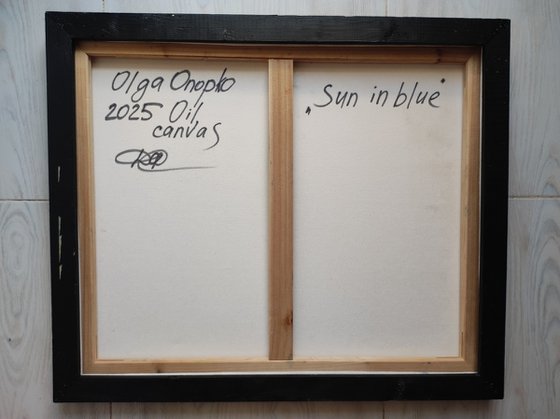 Olga Onopko
2025 Oil,
canvas
„Sun in blue"